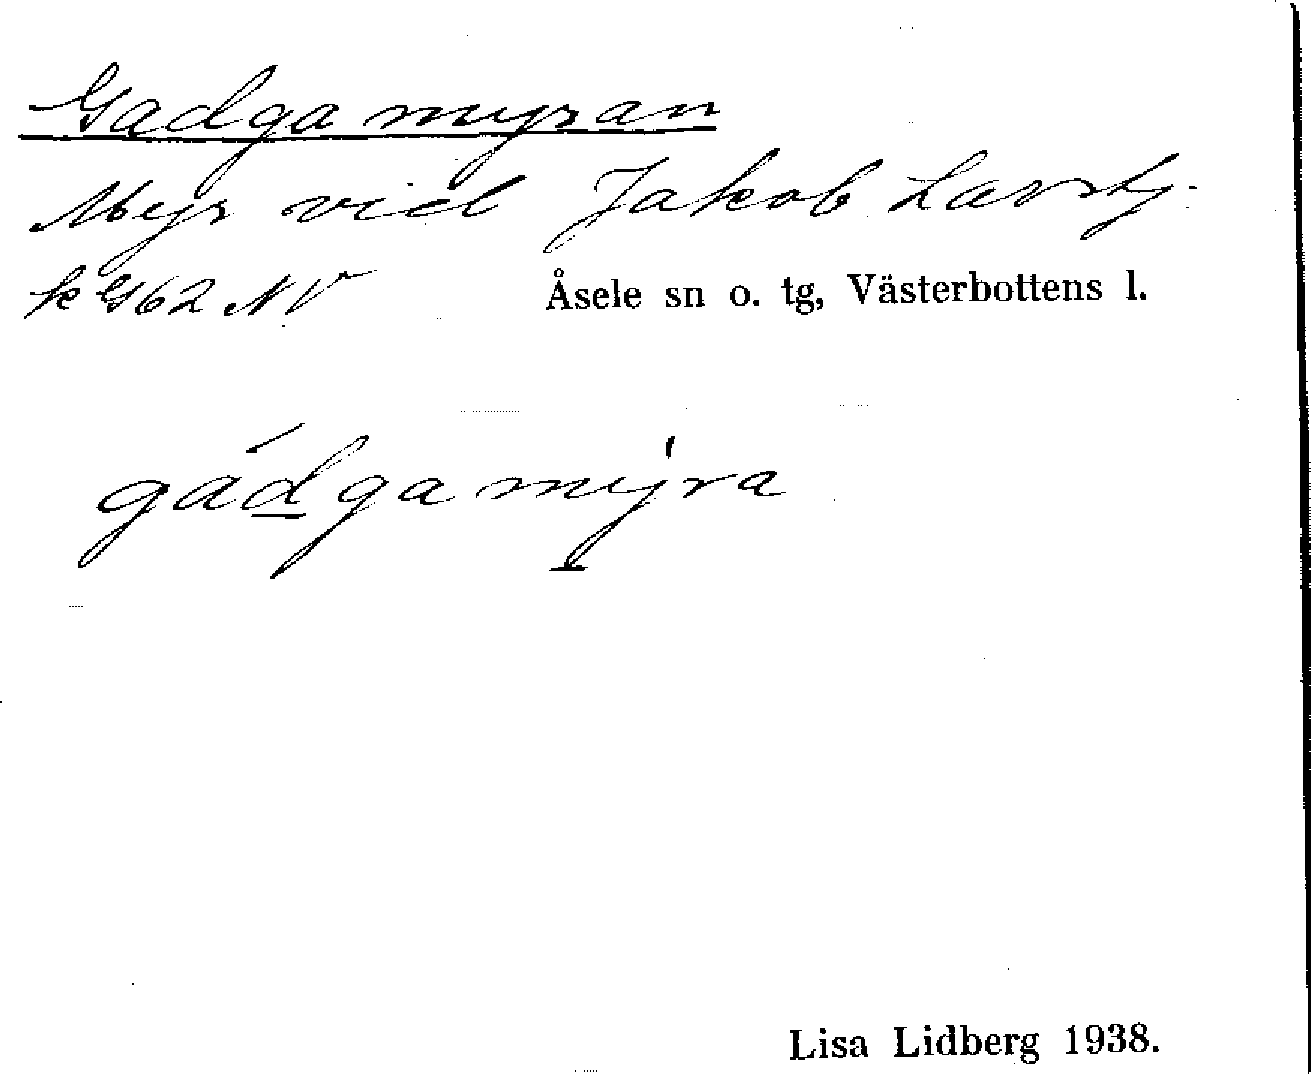 Gadgamyran
Myr vid Jakob Larstj.
k G62 NV Åsele sn o. tg, Västerbottens l.
gádgamýra
Lisa Lidberg 1938.